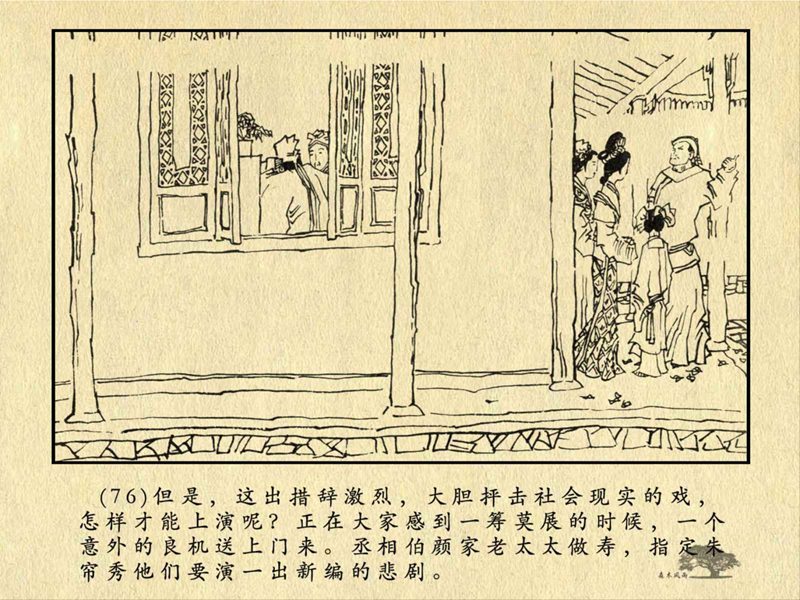 (76)但是，这出措辞激烈，大胆抨击社会现实的戏，
怎样才能上演呢？正在大家感到一筹莫展的时候，一个
意外的良机送上门来。丞相伯颜家老太太做寿，指定朱
帘秀他们要演一出新编的悲剧。
森木风雨